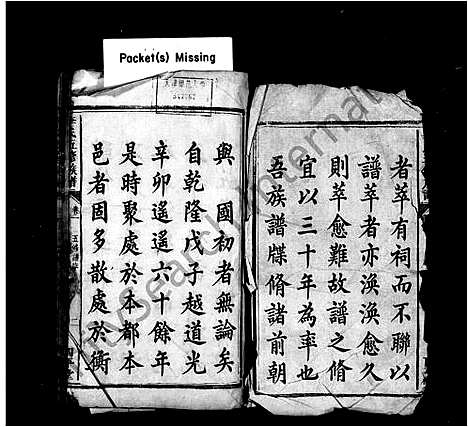 Packet(s) Missing
者萃有祠而不聯以
譜萃者亦渙渙愈久
則萃愈難故譜之脩
宜以三十年為率也
吾族譜牒脩諸前朝
與 國初者無論矣
自乾隆戊子越道光
辛卯遙遙六十餘年
是時聚處於本都本
邑者固多散處於衡